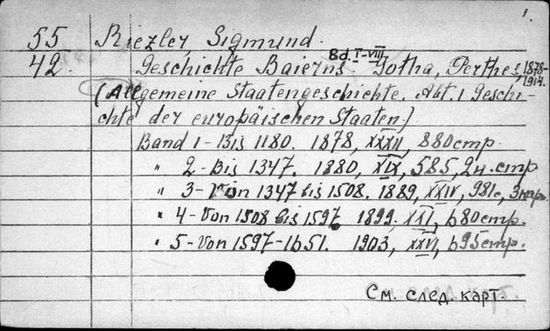 1.
55 Riezler, Sigmund.
42. Geschichte Baierns. Bd. I-VIII. Gotha, Perthes, 1878-1914.
(Allgemeine Staatengeschichte. Abt. 1 Geschi-
chte der europäischen Staaten.)
Band 1 - Bis 1180. 1878, XXXII, 880 стр.
" 2 - Bis 1347. 1880, XIX, 585, 2 н. стр
" 3 - Von 1347 bis 1508. 1889, XXIV, 981 с,
" 4 - Von 1508 bis 1597. 1899. XXI, 680 стр.
" 5 - Von 1597-1651. 1903, XXVI, 695 стр.
См. след. карт.